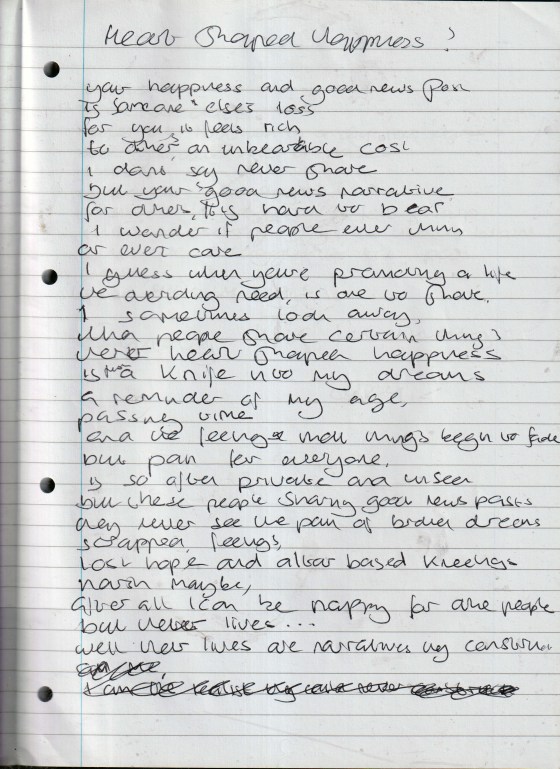 Heart Shaped Happiness?
your happiness and good news post
is someone elses loss
for you, it feels rich
to others an unbearable cost
I don't say never share
but your good news narrative
for others, it is hard to bear
I wonder if people ever think
or even care
I guess when you're promoting a life
the overiding need, is one to share.
I sometimes look away,
when people share certain things
their heart shaped happiness
is a knife into my dreams
a reminder of my age,
passing time
and the feeling most things begin to fade
but pain for everyone,
is so often private and unseen
but these people sharing good news posts
they never see the pain of broken dreams
scrapped feelings,
lost hope and altar based kneelings
harsh maybe,
after all I can be happy for one people
but their lives...
well their lives are narratives they construct